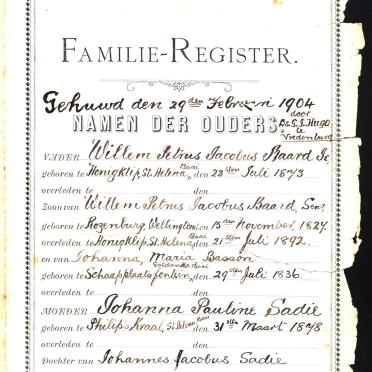 FAMILIE-REGISTER.
Gehuwd den 29sten Februari 1904
door
Ds. G. J. Hugo
te
Vredenburg
NAMEN DER OUDERS
VADER Willem Petrus Jacobus Baard Jr.
geboren te Honigklip, St. Helena Baai den 28sten Juli 1873
overleden te den
Zoon van Willem Petrus Jacobus Baard, Senr
geboren te Rozenburg, Wellington den 15den November, 1827.
overleden te Honigklip, St. Helena Baai den 21sten Juli 1892.
en van Johanna, Maria Basson
geboren te Schaapplaatsfontein, den 29ste Juli 1836.
overleden te den
MOEDER Johanna Pauline Sadie
geboren te Philips Kraal, St. Helena Baai den 31ste Maart 1878
overleden te den
Dochter van Johannes Jacobus Sadie